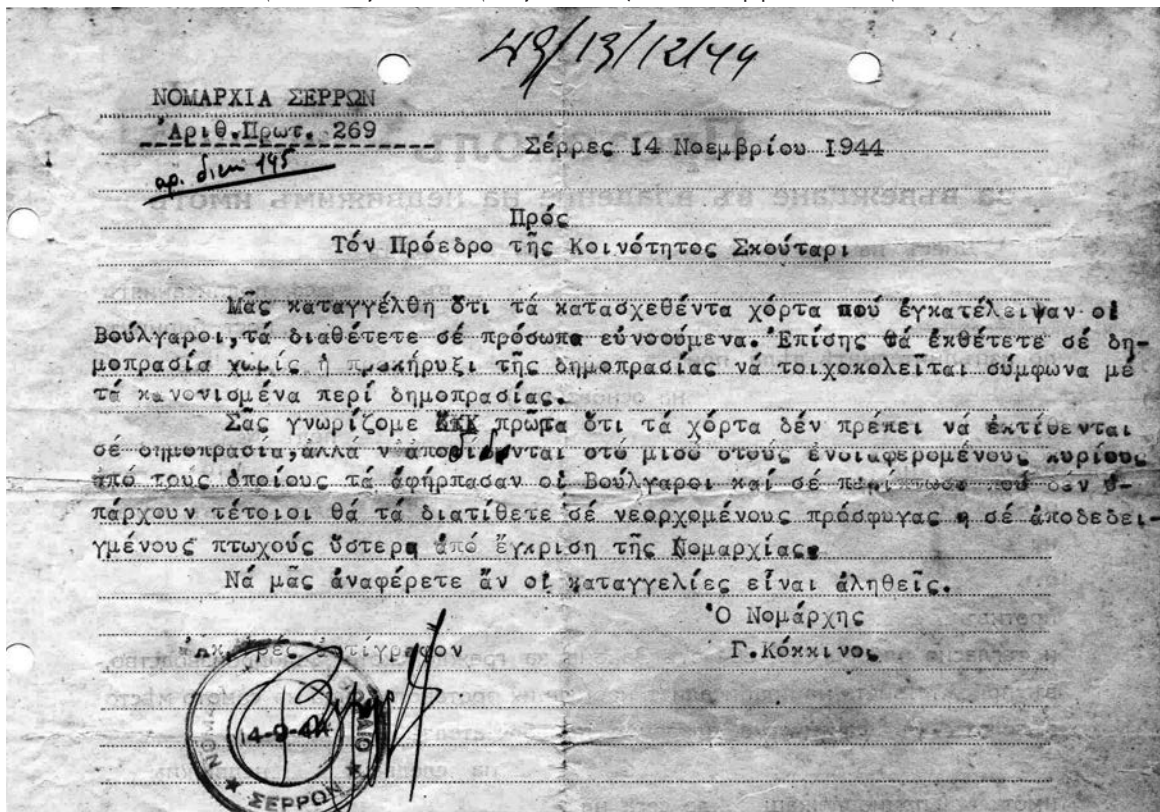 49/13/12/44
ΝΟΜΑΡΧΙΑ ΣΕΡΡΩΝ
Ἀριθ.Πρωτ. 269
Σέρρες I4 Νοεμβρίου I944
αρ. διεκ 145
за въвеждане въ владение на недвижимъ имотъ
Πρός
Τόν Πρόεδρο τῆς Κοινότητος Σκούταρι
Μᾶς καταγγέλθη ὅτι τά κατασχεθέντα χόρτα πού ἐγκατέλειψαν οἱ
Βούλγαροι,τά διαθέτετε σέ πρόσωπα εὐνοούμενα. Ἐπίσης θά ἐκθέτετε σέ δη-
μοπρασία χωρίς ἡ προκήρυξι τῆς δημοπρασίας νά τοιχοκολεῖται σύμφωνα μέ
τά κανονισμένα περί δημοπρασίας.
Σᾶς γνωρίζομε πρῶτα ὅτι τά χόρτα δέν πρέπει νά ἐκτίθενται
σέ δημοπρασία,ἀλλά ν'ἀποδίδονται στό μισό στούς ἐνδιαφερομένους κυρίους
ἀπό τους ὁποίους τά ἀφήρπασαν οἱ Βούλγαροι καί σέ περίπτωση πού δέν ὑ-
πάρχουν τέτοιοι θά τά διατίθετε σέ νεορχομένους πρόσφυγας η σέ ἀποδεδει-
γμένους πτωχούς ὕστερα ἀπό ἔγκριση τῆς Νομαρχίας.
Νά μᾶς ἀναφέρετε ἄν οἱ καταγγελίες εἶναι ἀληθεῖς.
Ὁ Νομάρχης
Ἀκριβές ἀντίγραφον
Γ.Κόκκινος
ΣΕΡΡΩΝ